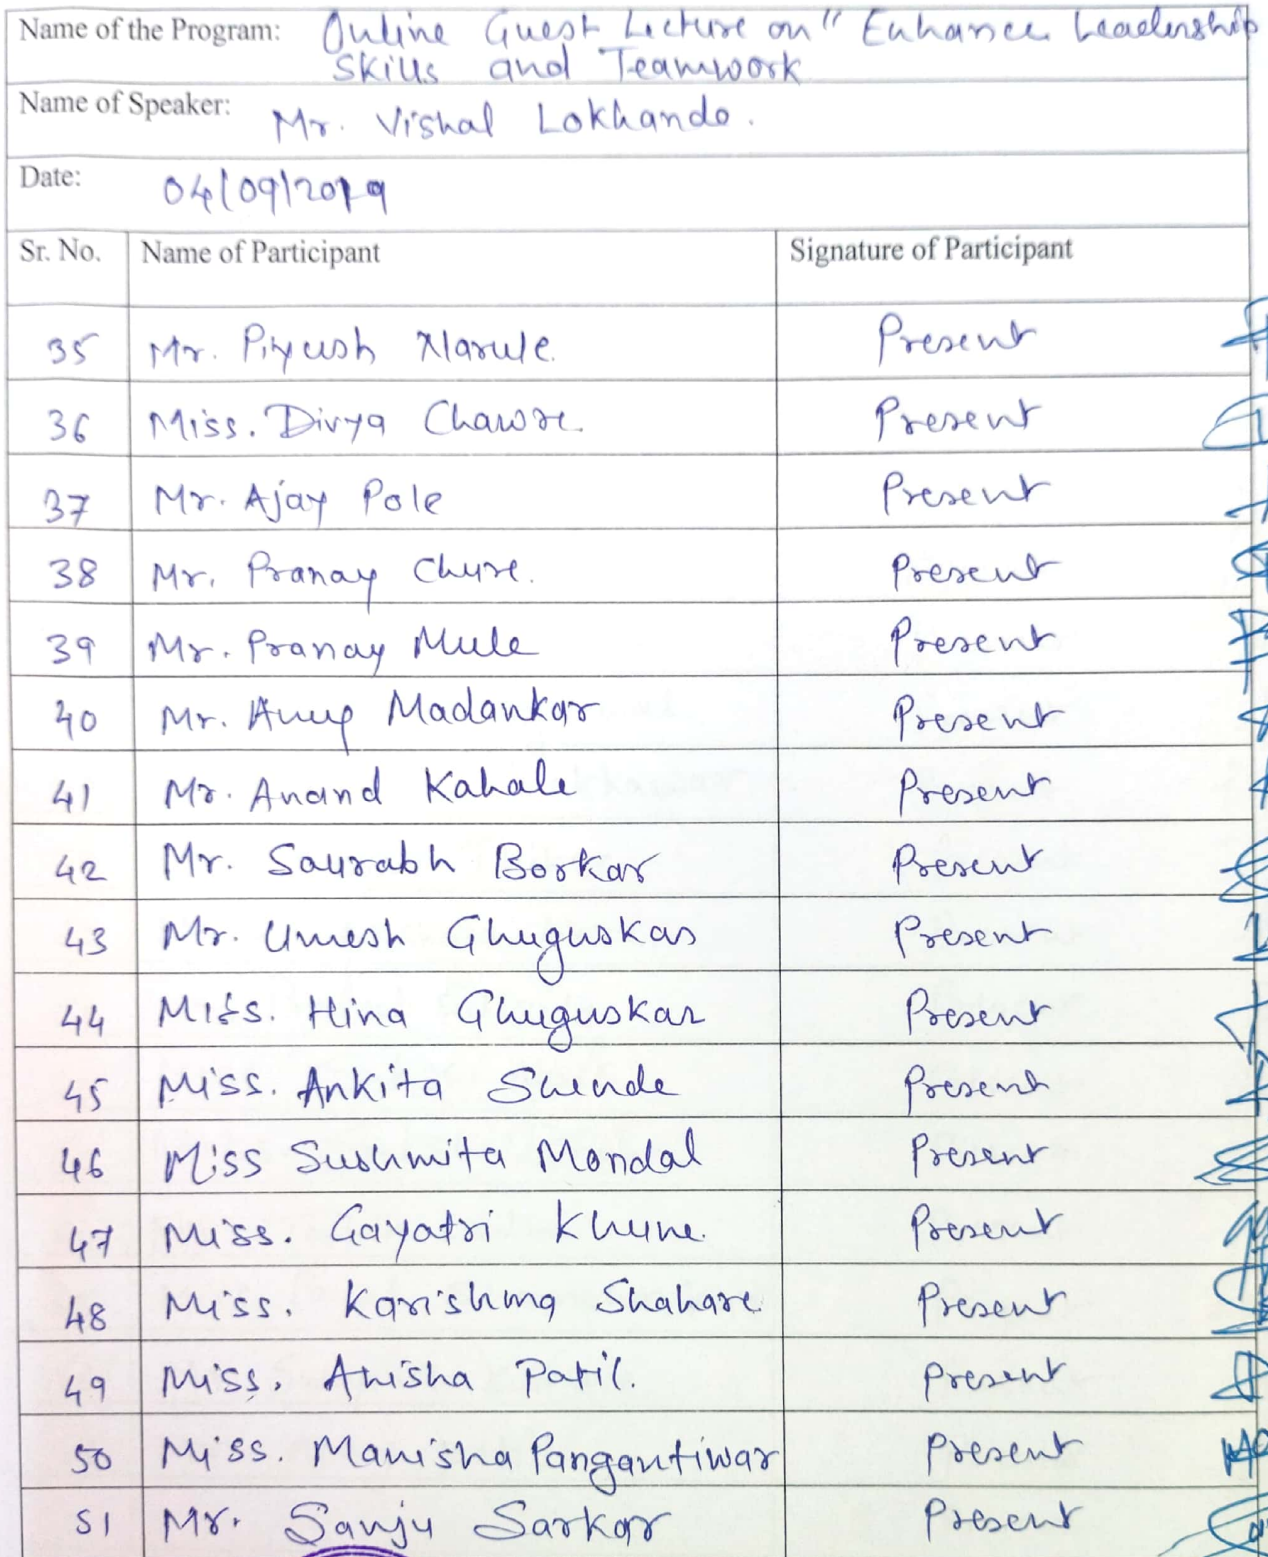 Name of the Program: Online Guest Lecture on " Enhance Leadership
Skills and Teamwork
Name of Speaker: Mr. Vishal Lokhande.
Date: 04/09/2019
Sr. No. Name of Participant Signature of Participant
35 Mr. Piyush Narule. Present
36 Miss. Divya Chawre. Present
37 Mr. Ajay Pole Present
38 Mr. Pranay Chure. Present
39 Mr. Pranay Mule Present
40 Mr. Anup Madankar Present
41 Mr. Anand Kahale Present
42 Mr. Saurabh Borkar Present
43 Mr. Umesh Ghuguskar Present
44 Miss. Hina Ghuguskar Present
45 Miss. Ankita Shende Present
46 Miss Sushmita Mondal Present
47 Miss. Gayatri Khune. Present
48 Miss. Karishma Shahare. Present
49 Miss. Anisha Patil. Present
50 Miss. Manisha Pangantiwar Present
51 Mr. Sanju Sarkar Present